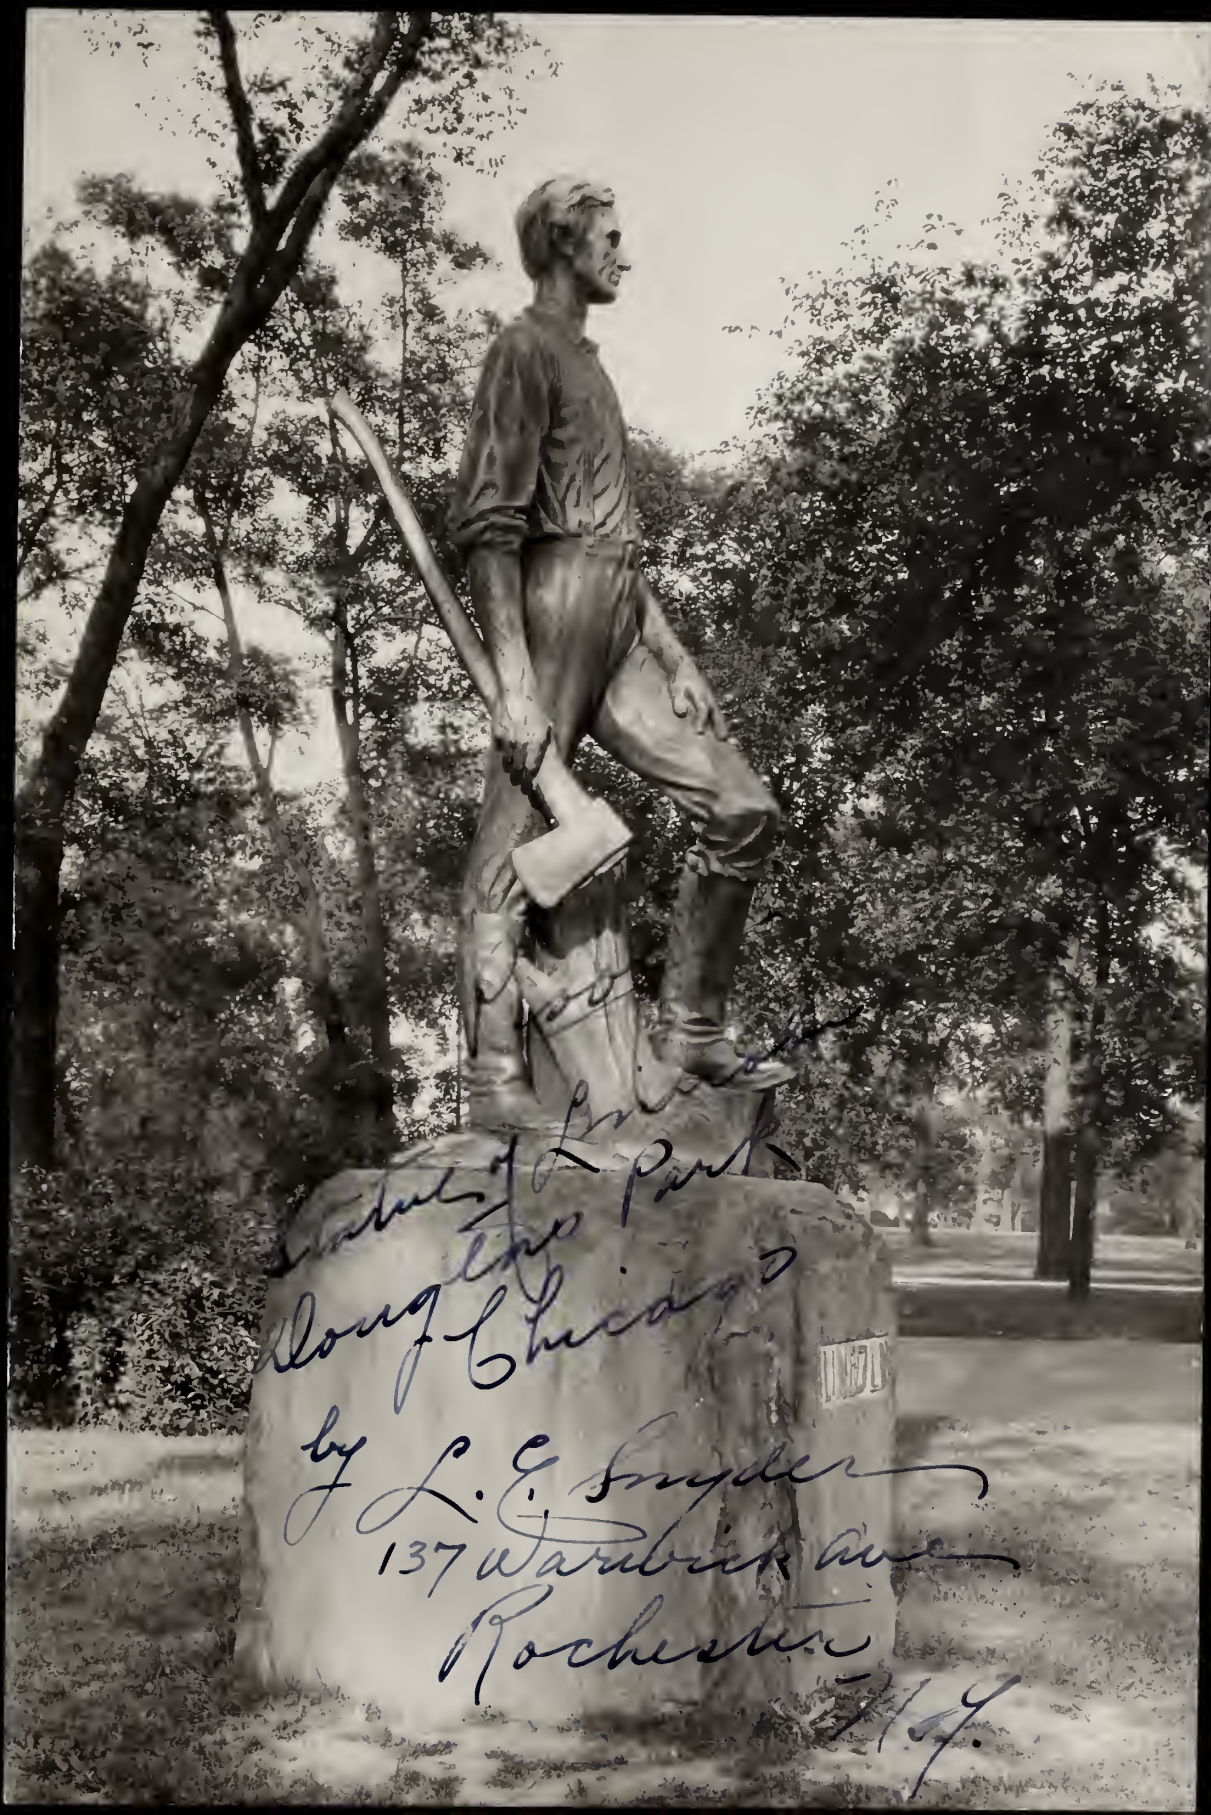 Statue of Lincoln
Douglas Park
Chicago
by L. E. Snyder
137 Warwick ave
Rochester
N.Y.
LINCOLN